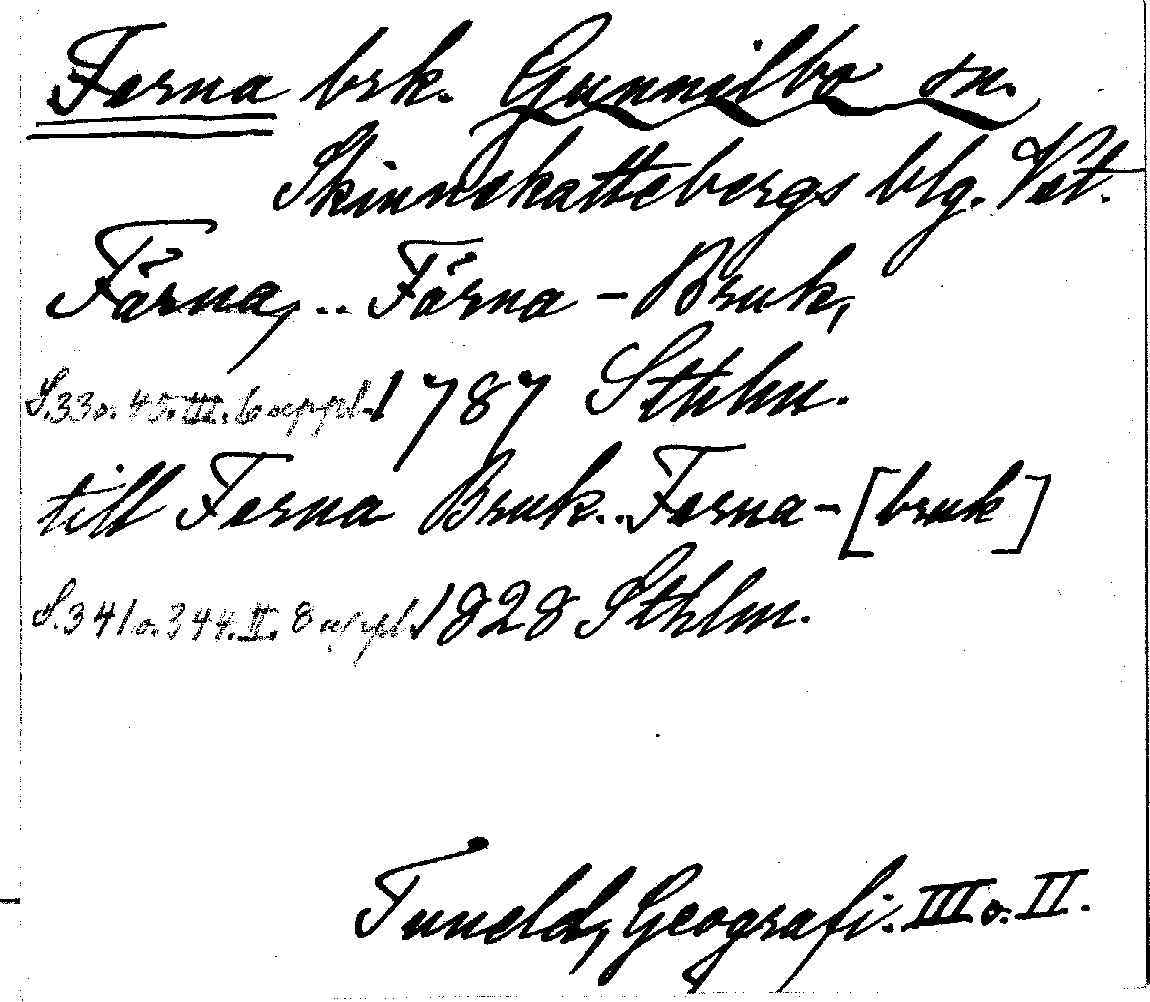 Ferna brk. Gunnilbo sn.
Skinnskattebergs blg. Vst.
Färna, .. Färna - Bruk,
S. 33 o. 45. III. 6 uppl. 1787 Sthlm.
till Ferna Bruk .. Ferna - [bruk]
S. 341 o. 344. II. 8 uppl. 1828 Sthlm.
Tuneld, Geografi. III o. II.